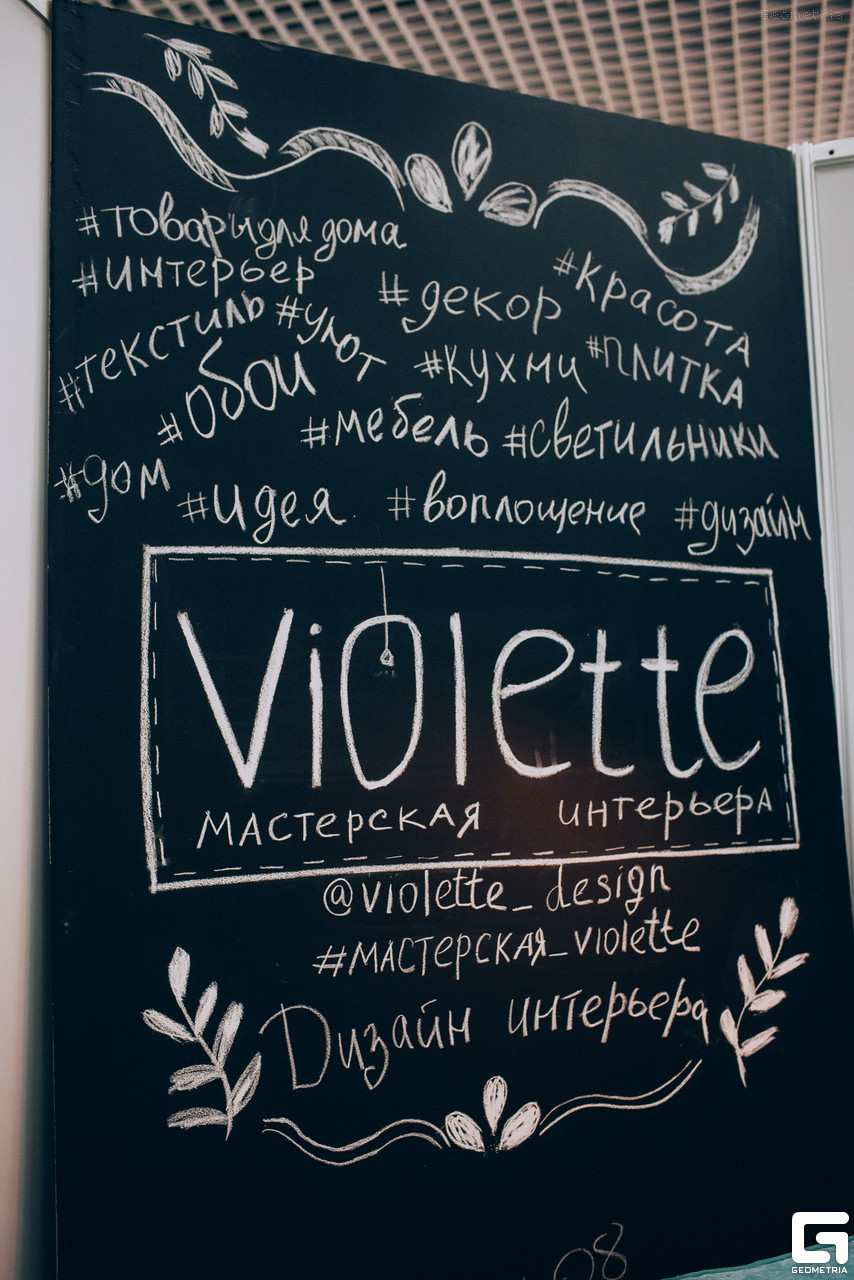 #товарыдля дома
#интерьер
#декор
#красота
#текстиль #уют
#обои
#кухни
#плитка
#мебель
#светильники
#дом
#идея
#воплощение
#дизайн
Violette
мастерская интерьера
@violette_design
#мастерская_violette
Дизайн интерьера
08
GEOMETRIA